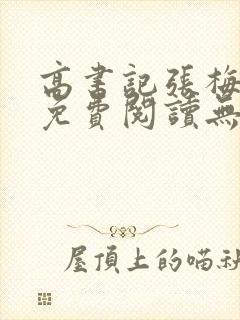 高書記張梅
免費閱讀無
屋頂上的喵